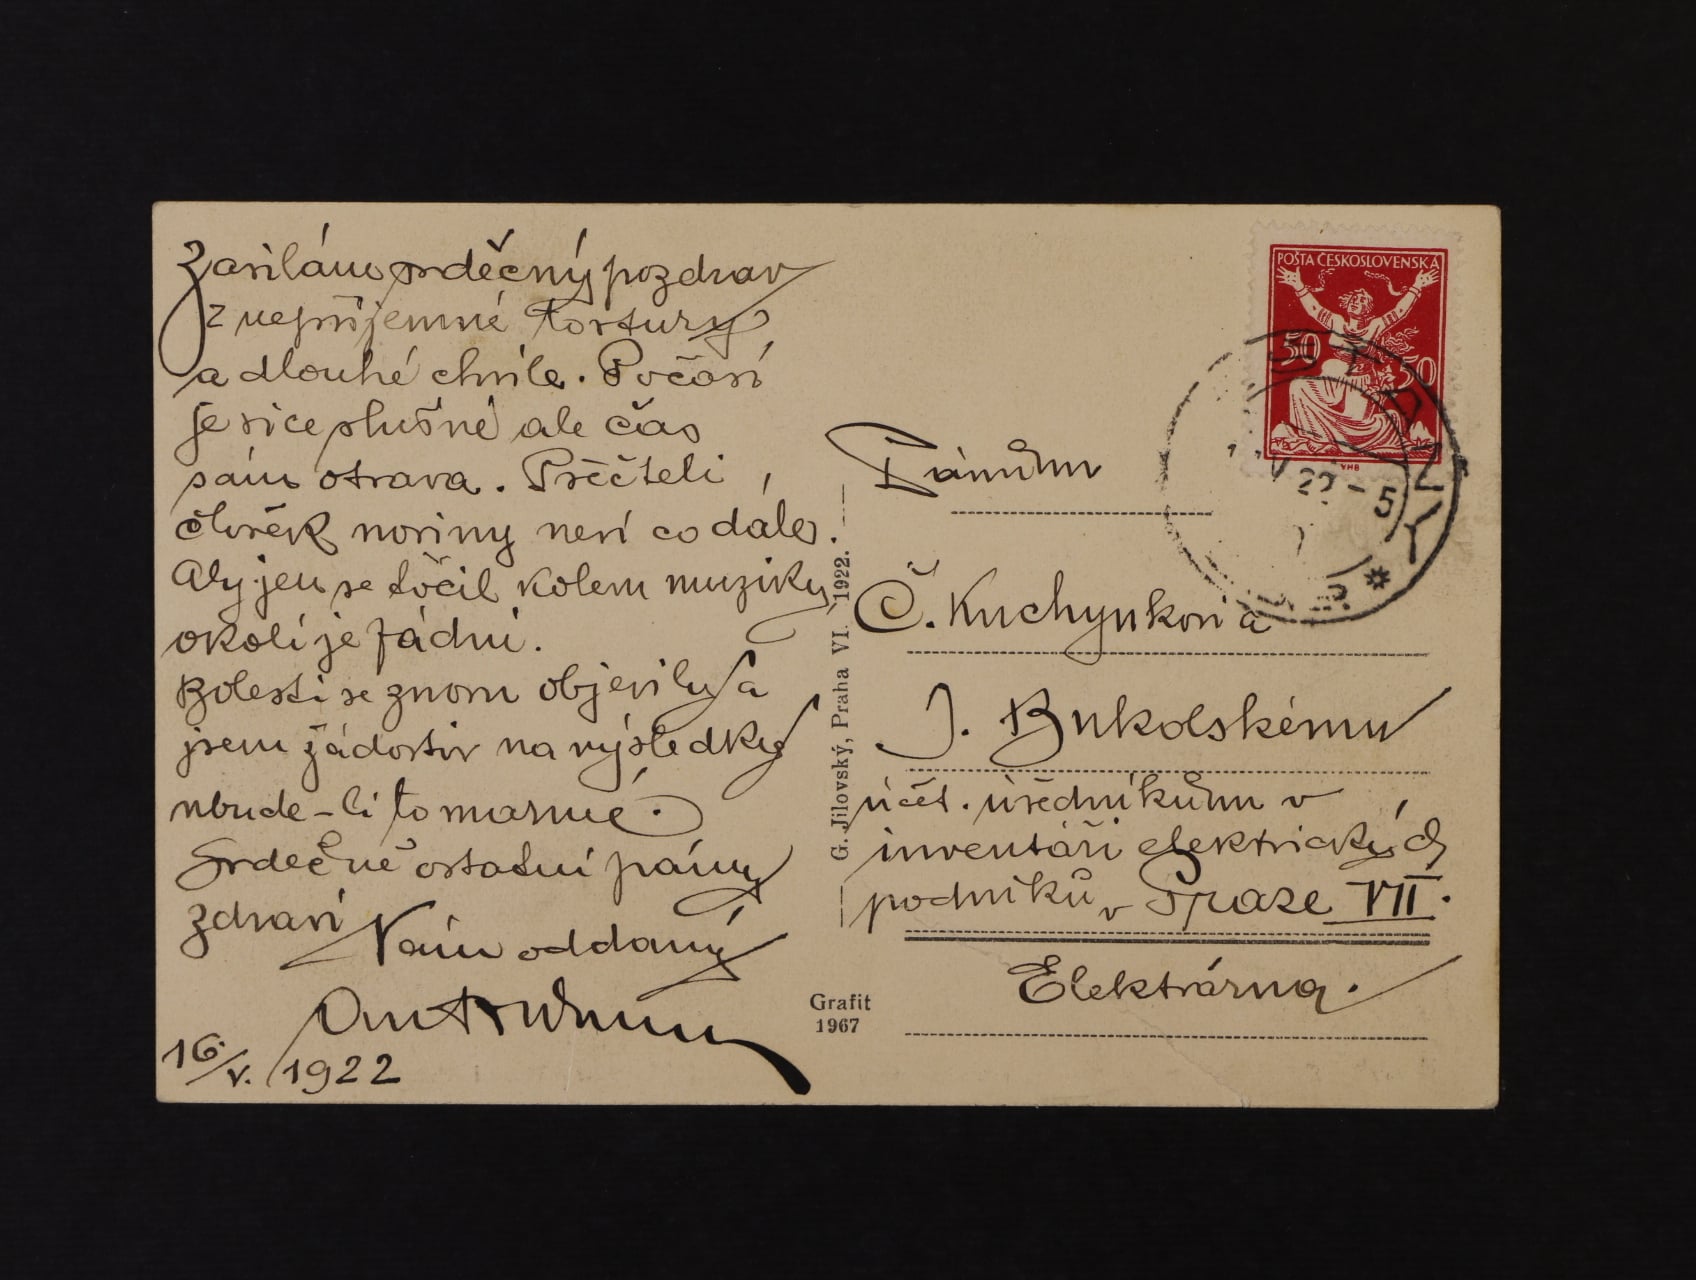 Zasílám srdečný pozdrav
z nepříjemné tortury
a dlouhé chvíle. Počasí
je sice slušné ale čas
sám otrava. Přečteli
člověk noviny neví co dále.
Aby jen se točil kolem muziky
okolí je fádní.
Bolesti se znovu objevily a
jsem žádostiv na výsledky
nbude-li to marné.
Srdečně ostatní pány
zdraví Vám oddaný
16./V. 1922
G. Jilovský, Praha VI. 1922.
Grafit
1967
POŠTA ČESKOSLOVENSKÁ
50 50
VHB
22-5
Pánům
Č. Kuchynkovi a
J. Bukolskému
účet. úředníkům v
inventáři elektrických
podniků v Praze VII.
Elektrárna.